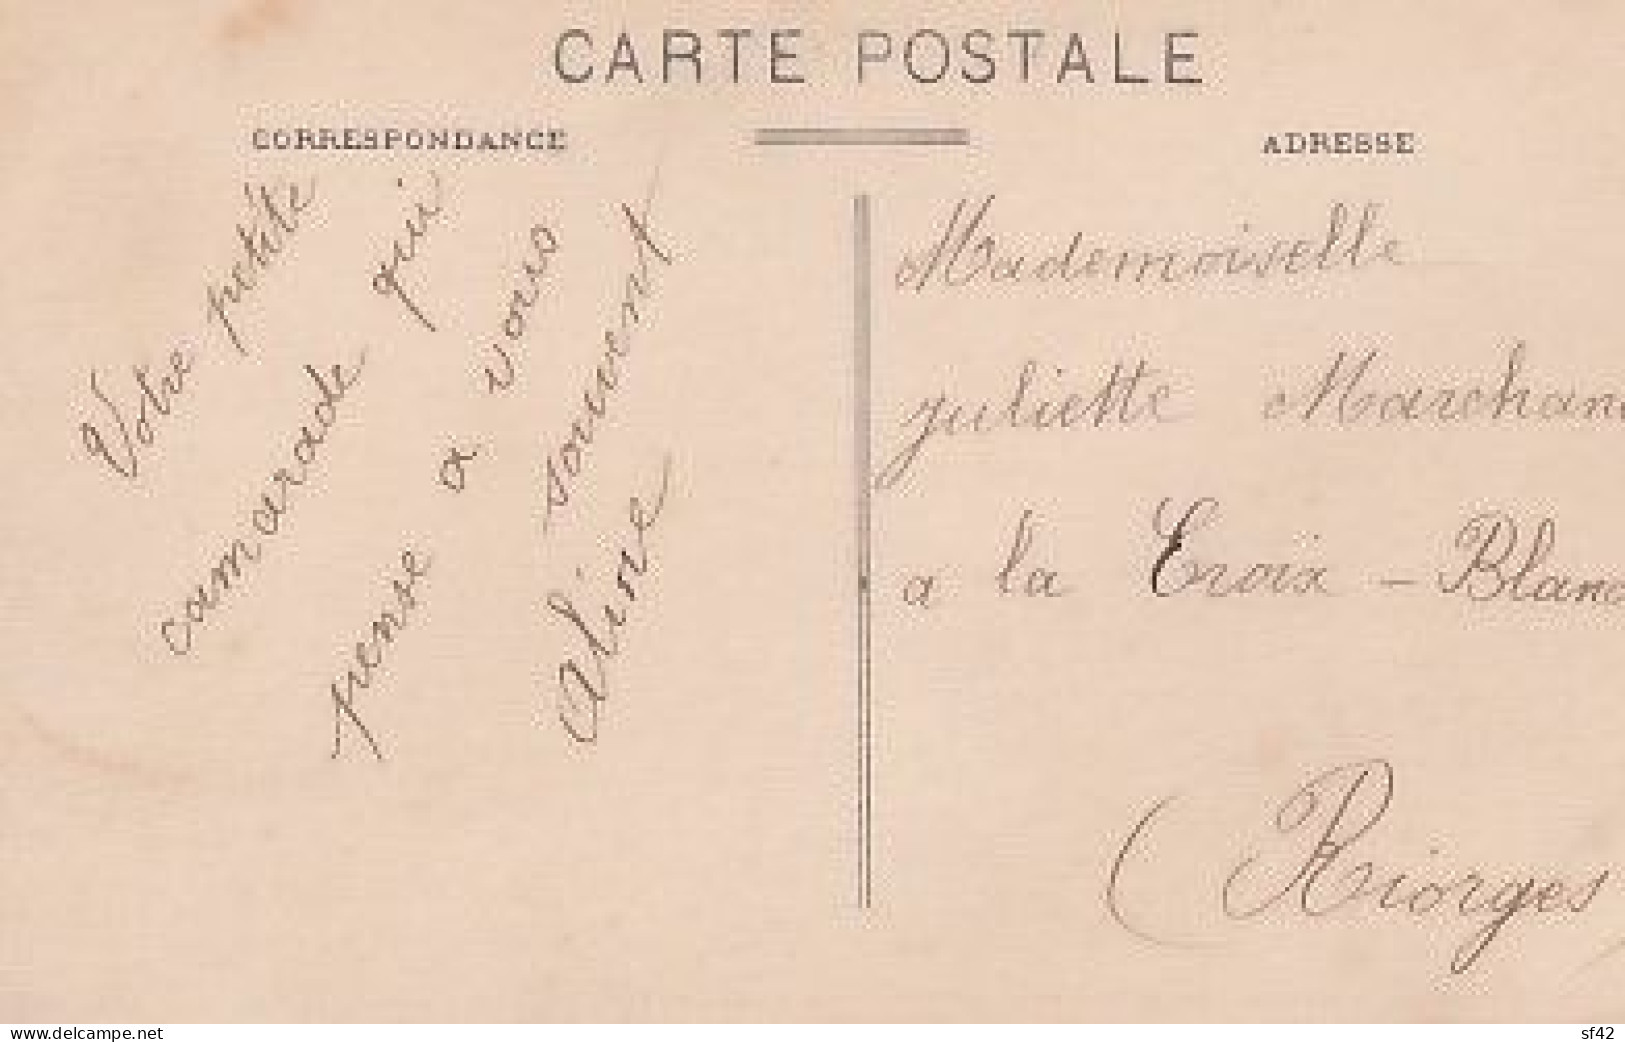 CARTE POSTALE
CORRESPONDANCE
ADRESSE
Votre petite
camarade qui
pense a vous
souvent
Aline
Mademoiselle
juliette Marchan
a la Croix - Blanc
(Riorges)
www.delcampe.net
sf42